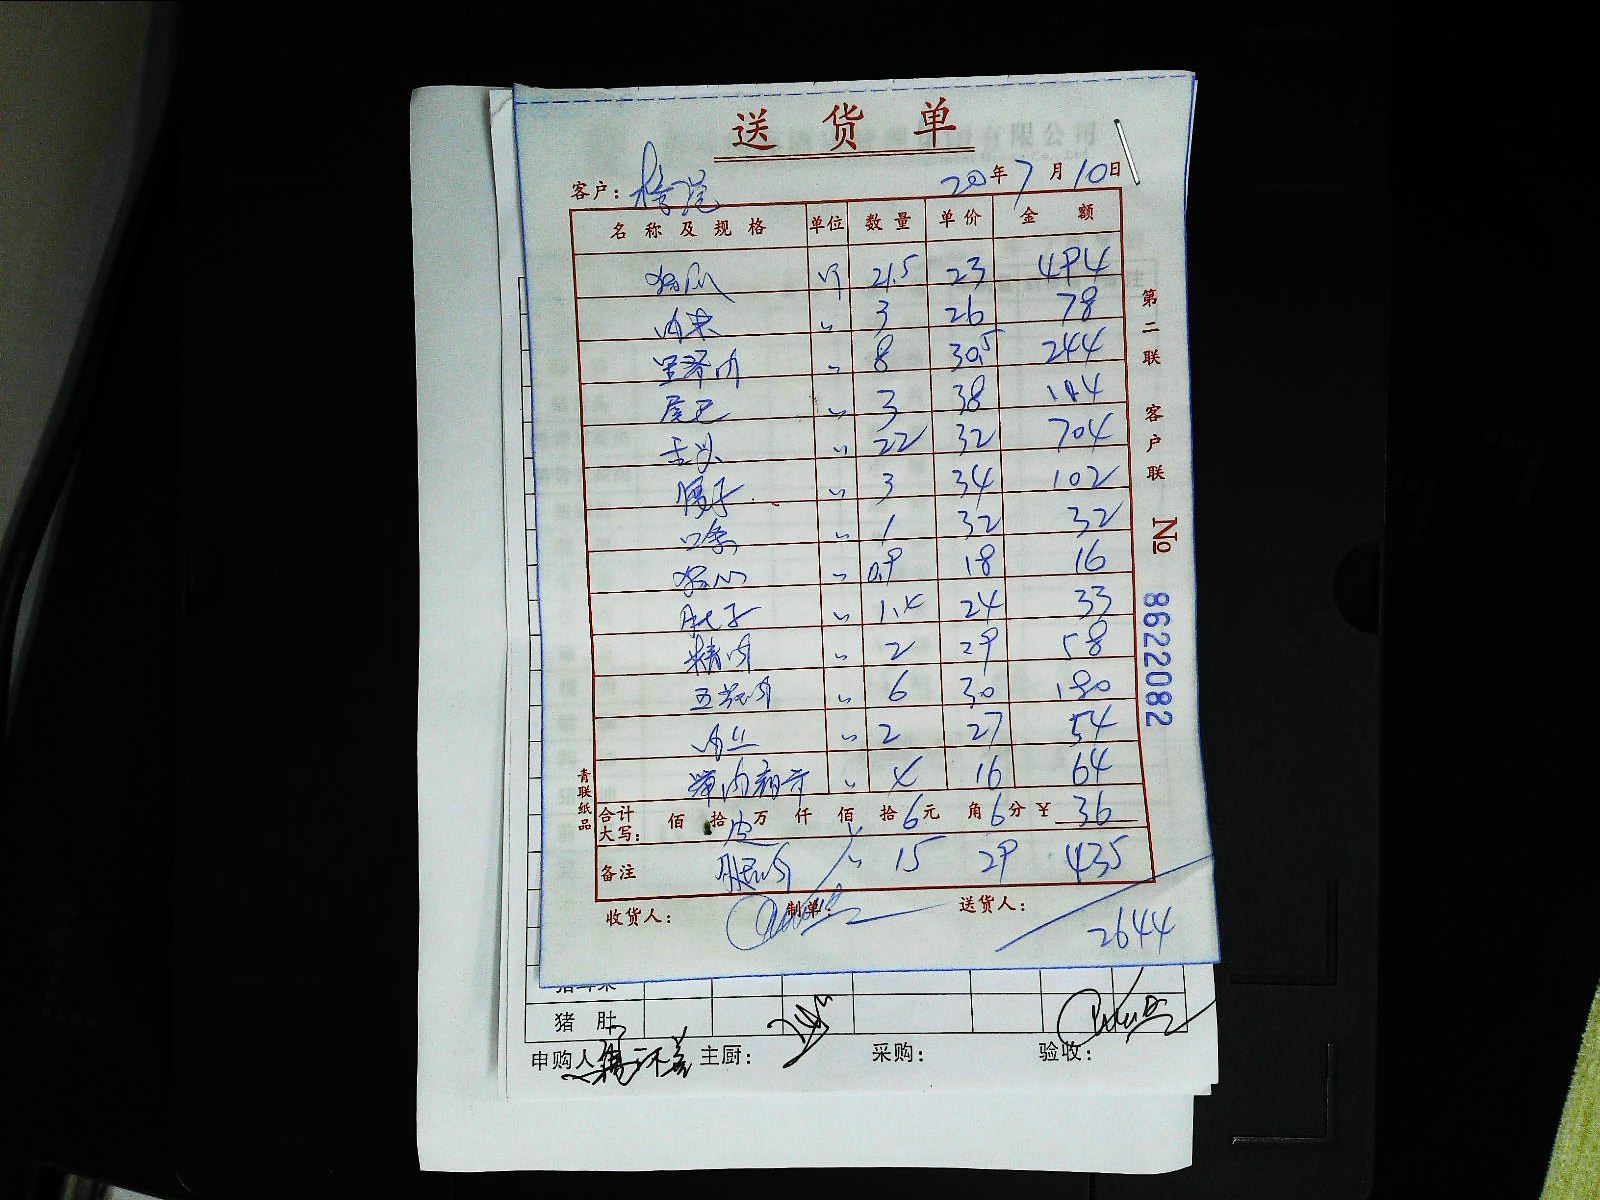 送货单
客户： 2020年7月10日
名称及规格 单位 数量 单价 金额
猪爪 斤 21.5 23 494
肉末 〃 3 26 78
里脊肉 〃 8 30.5 244
尾巴 〃 3 38 114
舌头 〃 22 32 704
腰子 〃 3 34 102
口条 〃 1 32 32
猪心 〃 0.9 18 16
肚子 〃 1.4 24 33
精肉 〃 2 29 58
五花肉 〃 6 30 180
肉丝 〃 2 27 54
〃 4 16 64
合计大写： 佰 拾 万 仟 佰 拾 元 角 分 ￥
皮 6 6 36
备注 腿肉 〃 15 29 435
收货人： 制单： 送货人：
2644
第二联 客户联
№ 8622082
青联纸品
猪肚
申购人 主厨： 采购： 验收：